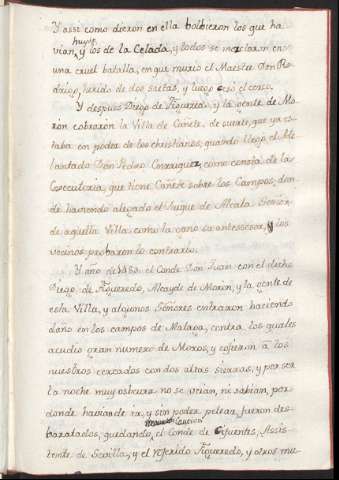 Y assi como dieron en ella bolbieron los que ha
huyº
vian, y los de la Celada, y todos se mezclaron en
una cruel batalla, en que murio el Maestre Don Ro
drigo, herido de dos saetas, y luego cesó el cerco.
Y despues Diego de Figueredo, y la gente de Mo
ron cobraron la Villa de Cañete, de suerte, que ya es
taba en poder de los christianos, quando llegó el Ade
lantado Don Pedro Enrriquez, como consta de la
Executoria, que tiene Cañete sobre los Campos, don
de haviendo alegado el Duque de Alcala Señor
de aquella Villa, como la gano su antessesor, y los
vecinos probaron lo contrario.
Y año de 1483. el Conde Don Juan con el dicho
Diego de Figueredo, Alcayde de Moron, y la gente de
esta Villa, y algunos Señores entraron haciendo
daño en los campos de Malaga, contra los quales
acudio gran numero de Moros, y cojieron á los
nuestros cercados con dos altas sierras, y por ser
la noche muy obscura no se veian, ni sabian, por
donde havian de ir, y sin poder pelear, fueron des
baratados, quedando, el Conde de Cifuentes, Asis
tente de Sevilla, y el referido Figueredo, y otros mu